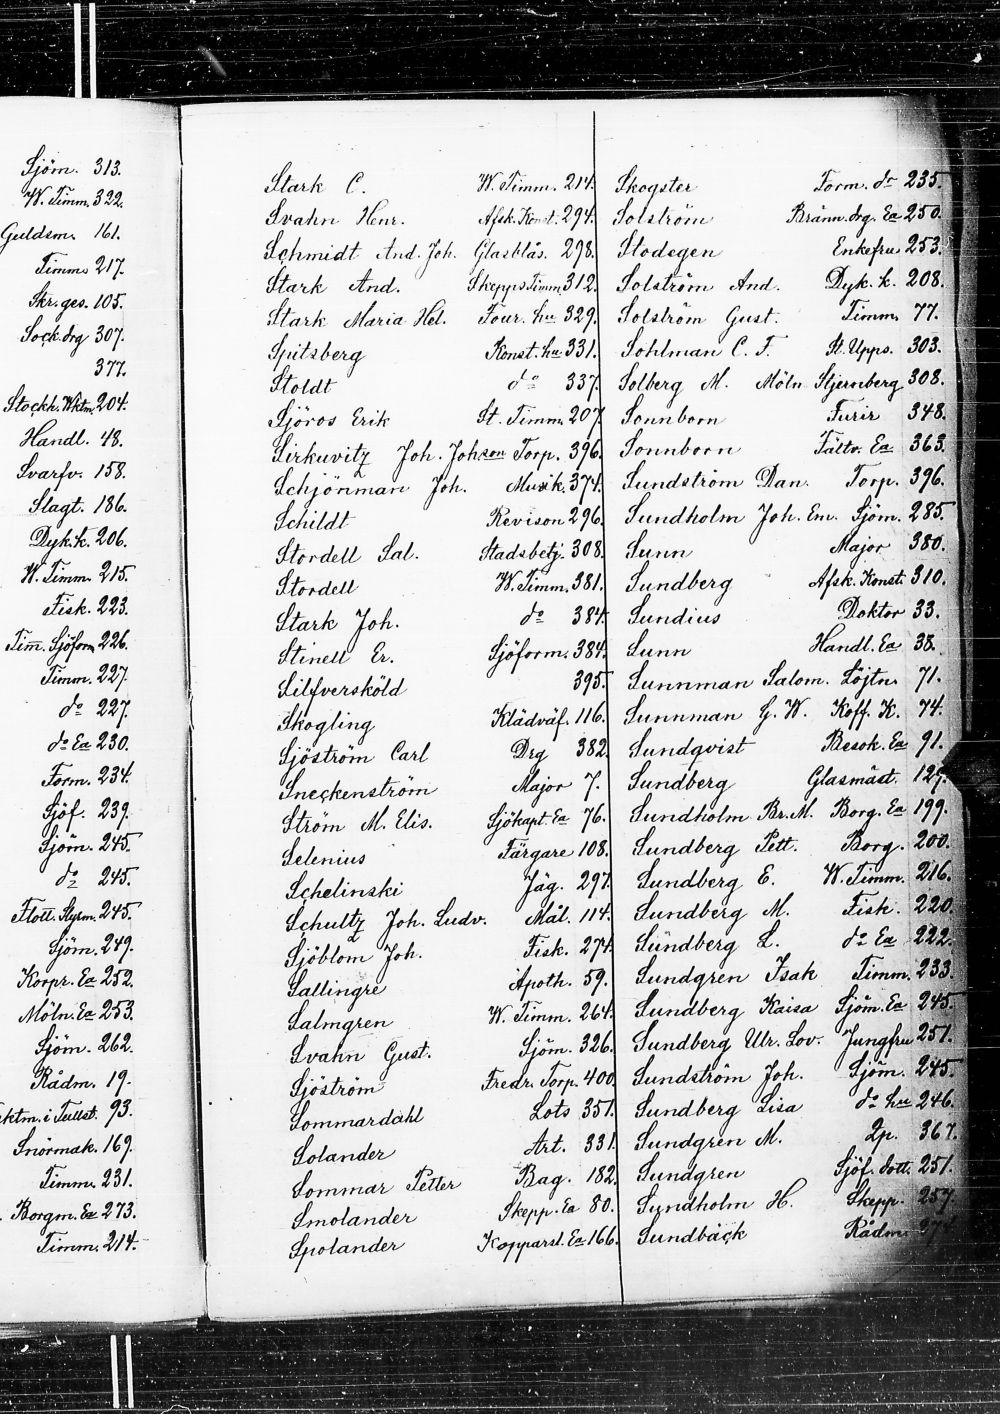 Sjöm. 313.
W. Timm. 322.
Guldsm. 161.
Timm. 217.
Skr. ges. 105.
Sock. drg 307.
377.
Stockh. Wktm. 204.
Handl. 48.
Svarfv. 158.
Slagt. 186.
Dyk. k. 206.
W. Timm. 215.
Fisk. 223.
Tim̅. Sjöform. 226.
Timm. 227.
do 227.
do Ea 230.
Form. 234.
Sjöf. 239.
Sjöm. 245.
do 245.
Flott. Styrm. 245.
Sjöm. 249.
Korpr. Ea 252.
Möln. Ea 253.
Sjöm. 262.
Rådm. 19.
ktm. i Tullst. 93.
Snörmak. 169.
Timm. 231.
Borgm. Ea 273.
Timm. 214.
Stark C. W. Timm. 214.
Svahn Henr. Afsk. Konst. 294.
Schmidt And. Joh. Glasblås. 298.
Stark And. Skepps Timm. 312.
Stark Maria Hel. Four. hu 329.
Spitsberg Konst. hu 331.
Stoldt do 337.
Sjöros Erik St. Timm. 207.
Sirkuvitz Joh. Johson Torp. 396.
Schjönman Joh. Musik. 374.
Schildt Revison 296.
Stordell Sal. Stadsbetj. 308.
Stordell W. Timm. 381.
Stark Joh. do 384.
Stinell Er. Sjöform. 384.
Silfversköld 395.
Skogling Klädväf. 116.
Sjöström Carl Drg 382.
Sneckenström Major 7.
Ström M. Elis. Sjökapt. Ea 76.
Selenius Färgare 108.
Schelinski Jäg. 297.
Schultz Joh. Ludv. Mål. 114.
Sjöblom Joh. Fisk. 274.
Sallingre Apoth. 59.
Salmgren W. Timm. 264.
Svahn Gust. Sjöm. 326.
Sjöström Fredr. Torp. 400.
Sommardahl Lots 351.
Solander Art. 331.
Sommar Petter Bag. 182.
Smolander Skepp. Ea 80.
Spolander Kopparsl. Ea 166.
Skogster Form. do 235.
Solström Bränn. drg. Ea 250.
Stodegen Enkefru 253.
Solström And. Dyk. k. 208.
Solström Gust. Timm. 77.
Sohlman C. F. St. Upps. 303.
Solberg M. Möln. Stjernberg 308.
Sonnborn Furir 348.
Sonnborn Fältv. Ea 363.
Sundström Dan. Torp. 396.
Sundholm Joh. Em. Sjöm. 285.
Sunn Major 380.
Sundberg Afsk. Konst. 310.
Sundius Doktor 33.
Sunn Handl. Ea 38.
Sunnman Salom. Löjtn. 71.
Sunnman G. W. Koff. K. 74.
Sundqvist Besök. Ea 91.
Sundberg Glasmäst. 129.
Sundholm Br. M. Borg. Ea 199.
Sundberg Pett. Borg. 200.
Sundberg E. W. Timm. 216.
Sundberg M. Fisk. 220.
Sundberg L. do Ea 222.
Sundgren Isak Timm. 233.
Sundberg Kaisa Sjöm. Ea 245.
Sundberg Ulr. Lov. Jungfru 251.
Sundström Joh. Sjöm. 245.
Sundberg Lisa do hu 246.
Sundgren M. 2p. 367.
Sundgren Sjöf. dott. 251.
Sundholm H. Skepp. 257.
Sundbäck Rådm. 274.